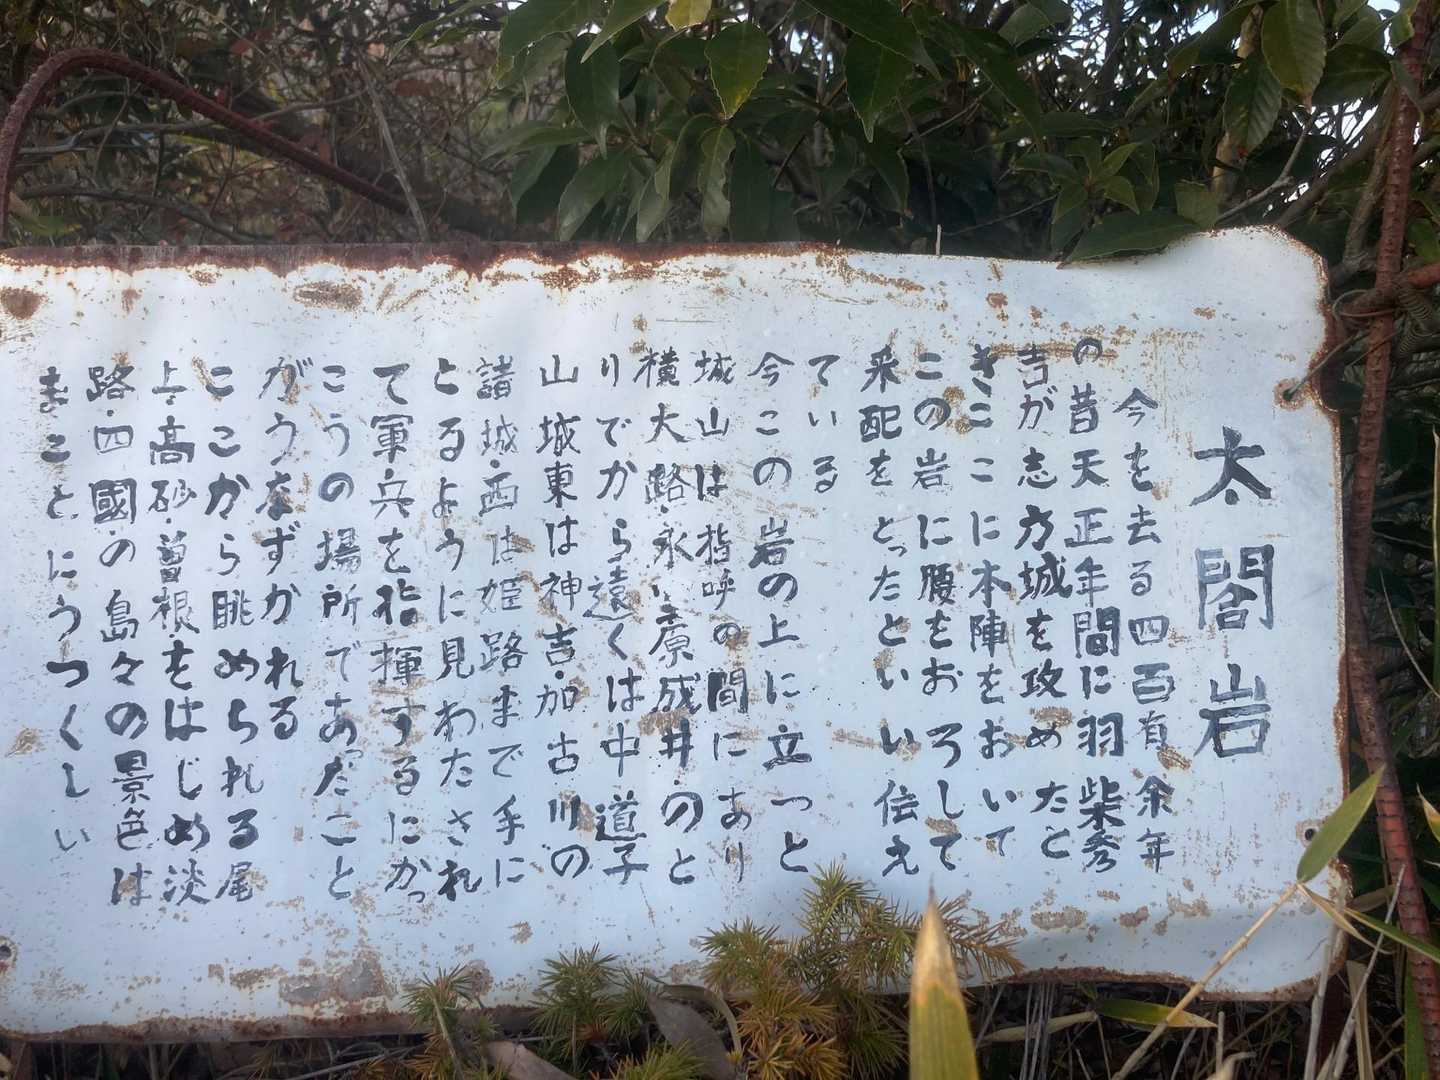 太閤岩
今を去る四百有余年
の昔天正年間に羽柴秀
吉が志方城を攻めたと
きここに本陣をおいて
この岩に腰をおろして
采配をとったといい伝え
ている
今この岩の上に立つと
城山は指呼の間にあり
横大路・永室原成井のと
りでから遠くは中道子
山城東は神吉・加古川の
諸城・西は姫路まで手に
とるように見わたされ
て軍兵を指揮するにかっ
こうの場所であったこと
がうなずかれる
ここから眺められる尾
上・高砂・曽根・をはじめ淡
路・四國の島々の景色は
まことにうつくしい